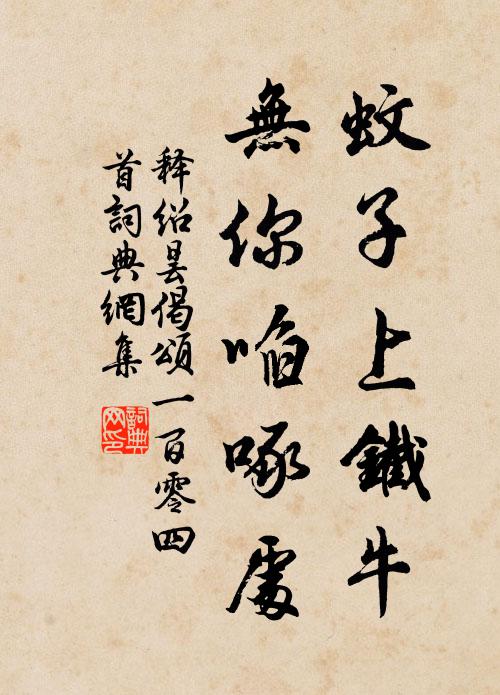 蚊子上鐵牛
無你咱啄處
释紹曇偈頌一百零四
首詞典網集
詞典
网印